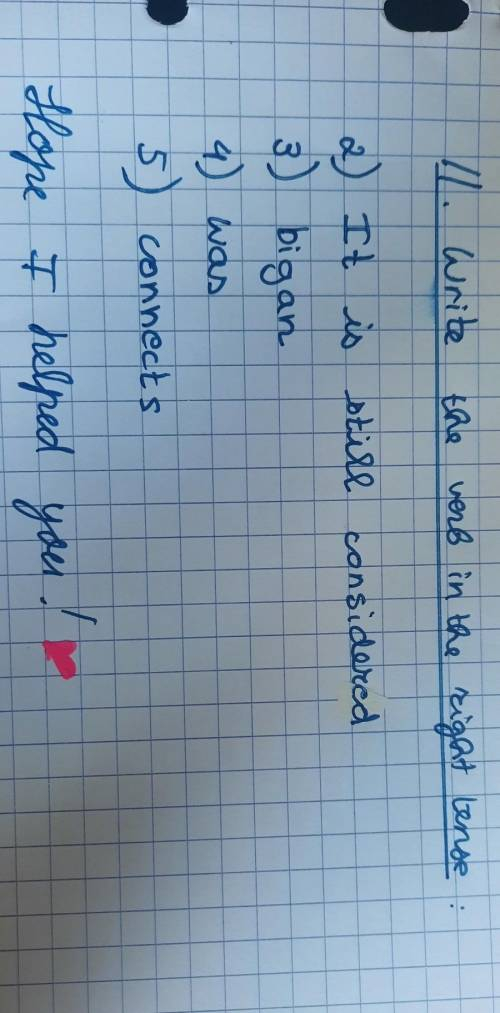 11. Write the verb in the right tense:
2) It is still considered
3) bigan
4) was
5) connects
Hope I helped you!